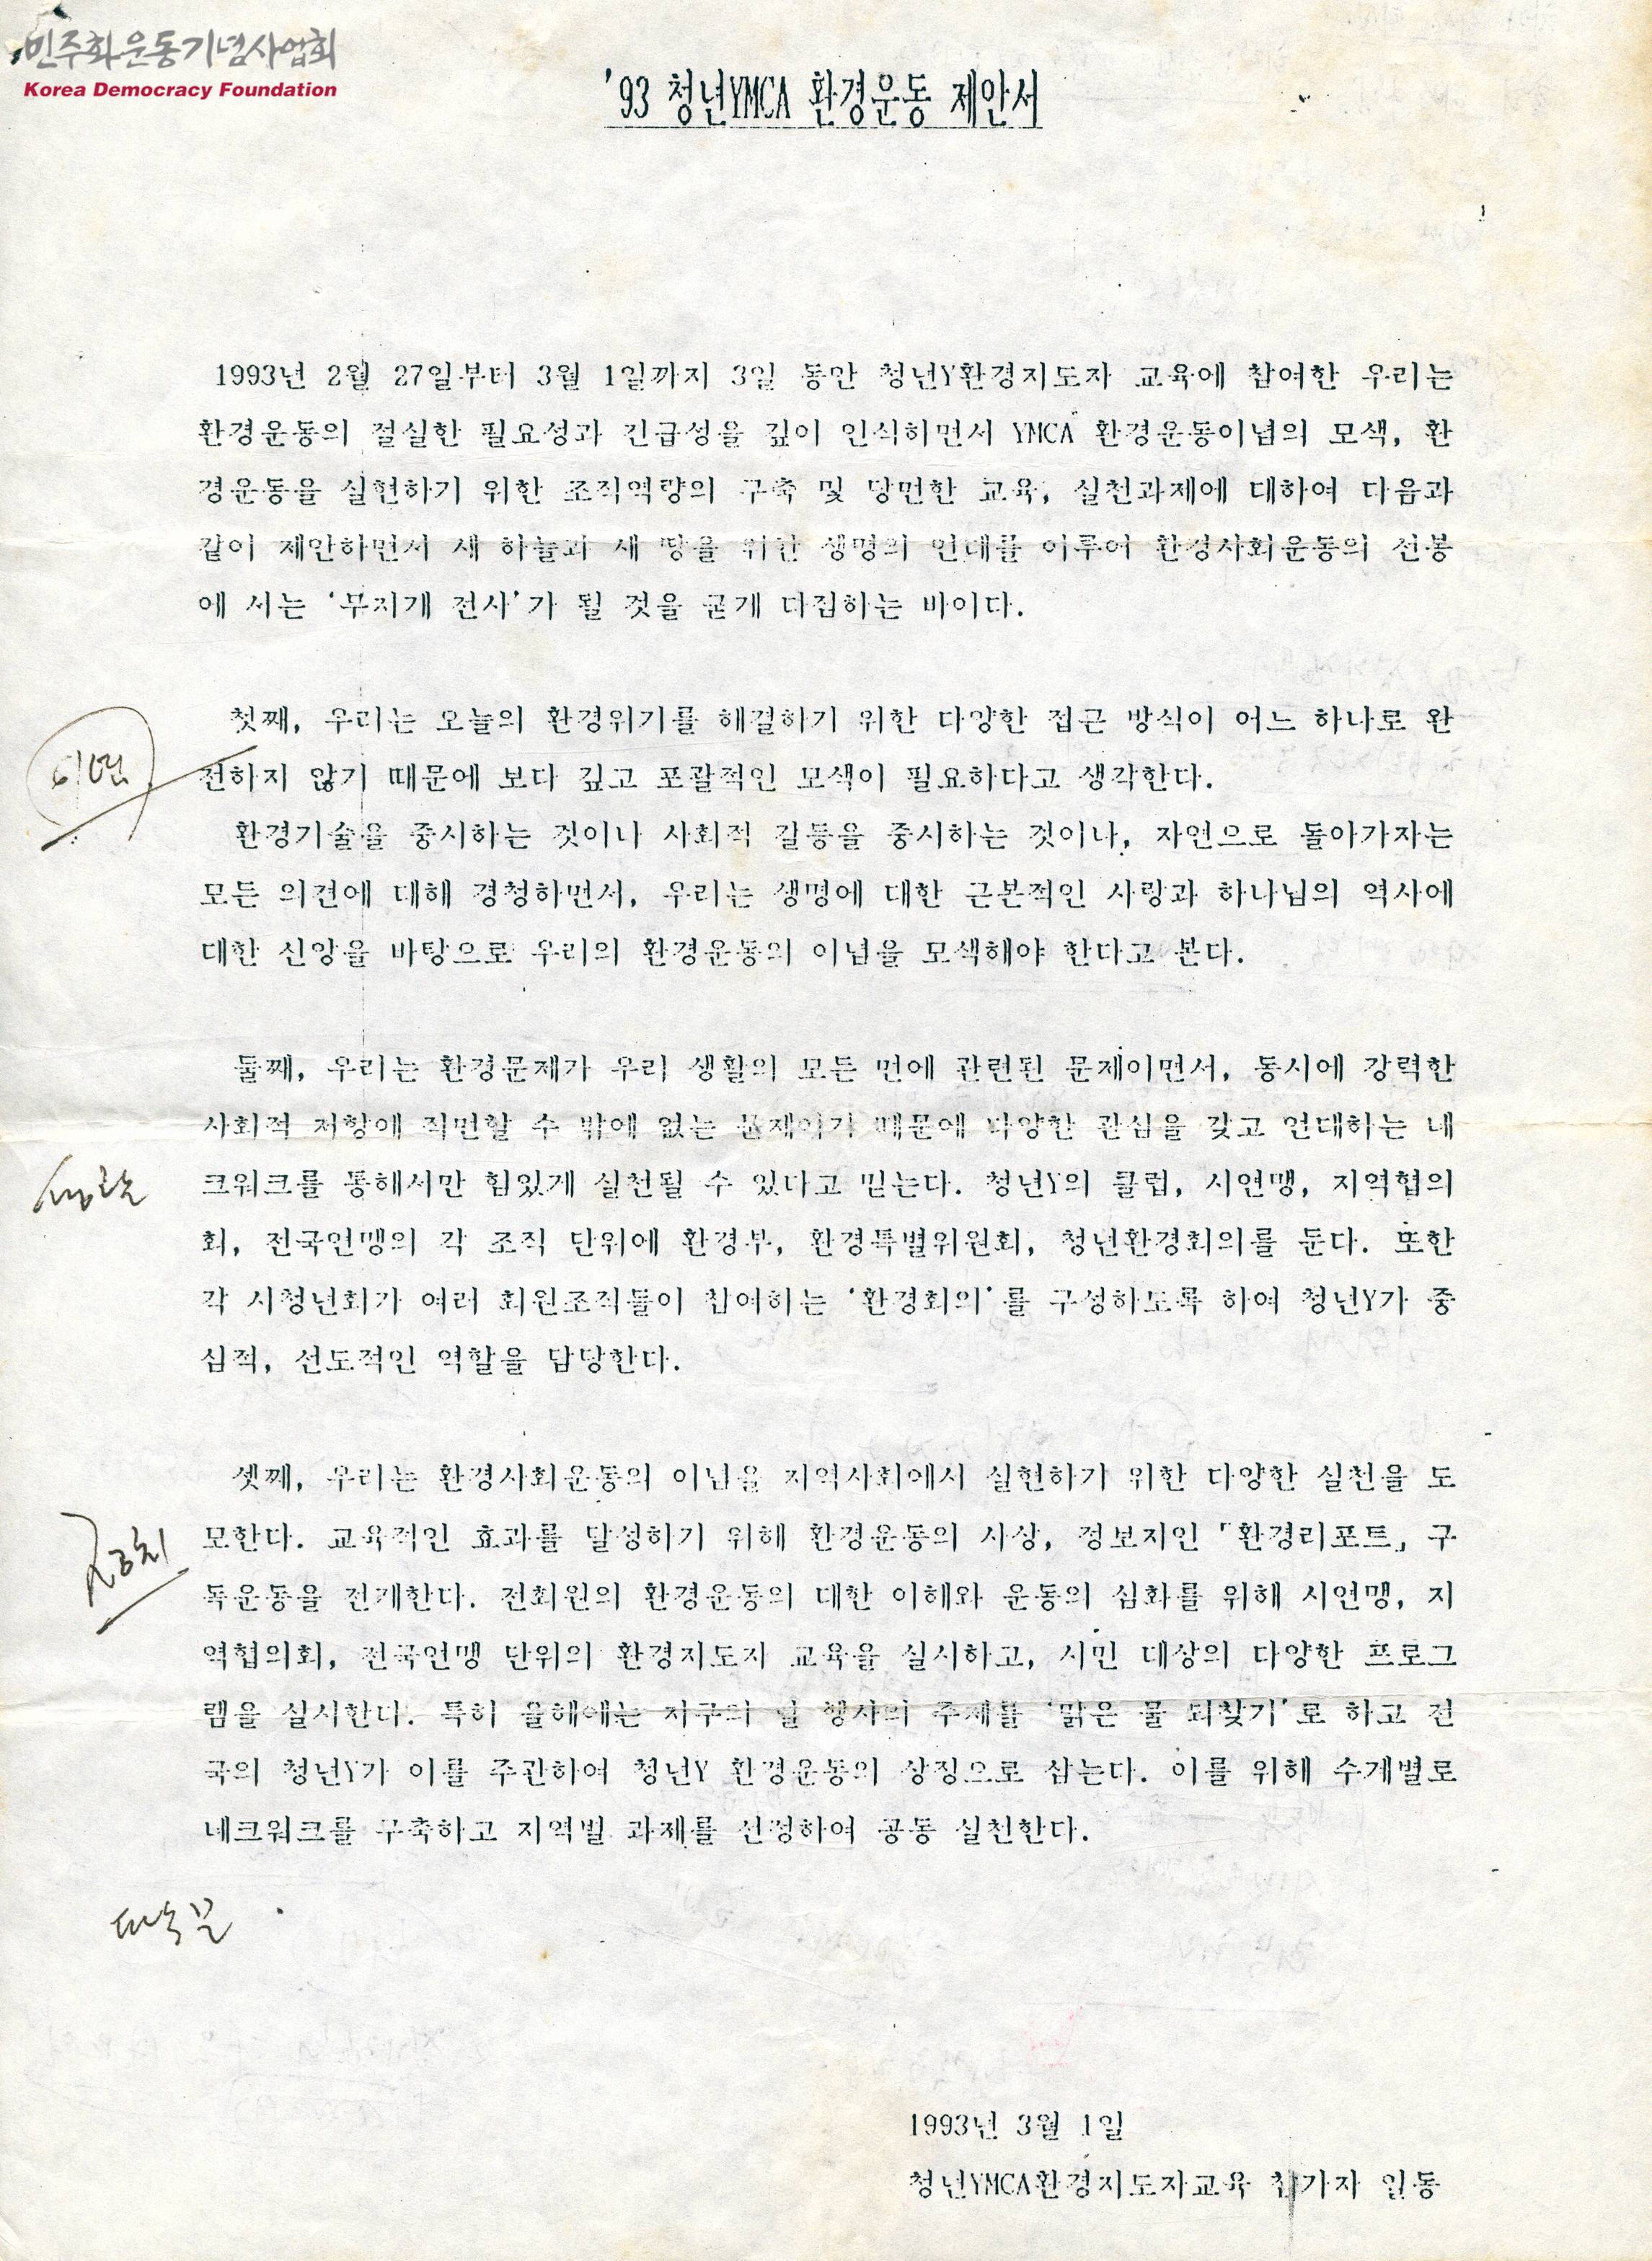 민주화운동기념사업회
Korea Democracy Foundation
'93 청년YMCA 환경운동 제안서
1993년 2월 27일부터 3월 1일까지 3일 동안 청년Y환경지도자 교육에 참여한 우리는
환경운동의 절실한 필요성과 긴급성을 깊이 인식하면서 YMCA 환경운동이념의 모색, 환
경운동을 실현하기 위한 조직역량의 구축 및 당면한 교육, 실천과제에 대하여 다음과
같이 제안하면서 새 하늘과 새 땅을 위한 생명의 연대를 이루어 환경사회운동의 선봉
에 서는 '무지개 전사'가 될 것을 굳게 다짐하는 바이다.
첫째, 우리는 오늘의 환경위기를 해결하기 위한 다양한 접근 방식이 어느 하나로 완
이념
전하지 않기 때문에 보다 깊고 포괄적인 모색이 필요하다고 생각한다.
환경기술을 중시하는 것이나 사회적 갈등을 중시하는 것이나, 자연으로 돌아가자는
모든 의견에 대해 경청하면서, 우리는 생명에 대한 근본적인 사랑과 하나님의 역사에
대한 신앙을 바탕으로 우리의 환경운동의 이념을 모색해야 한다고 본다.
둘째, 우리는 환경문제가 우리 생활의 모든 면에 관련된 문제이면서, 동시에 강력한
사회적 저항에 직면할 수 밖에 없는 문제이기 때문에 다양한 관심을 갖고 연대하는 네
크워크를 통해서만 힘있게 실천될 수 있다고 믿는다. 청년Y의 클럽, 시연맹, 지역협의
회, 전국연맹의 각 조직 단위에 환경부, 환경특별위원회, 청년환경회의를 둔다. 또한
각 시청년회가 여러 회원조직들이 참여하는 '환경회의'를 구성하도록 하여 청년Y가 중
심적, 선도적인 역할을 담당한다.
셋째, 우리는 환경사회운동의 이념을 지역사회에서 실현하기 위한 다양한 실천을 도
모한다. 교육적인 효과를 달성하기 위해 환경운동의 사상, 정보지인 「환경리포트」 구
독운동을 전개한다. 전회원의 환경운동의 대한 이해와 운동의 심화를 위해 시연맹, 지
역협의회, 전국연맹 단위의 환경지도자 교육을 실시하고, 시민 대상의 다양한 프로그
램을 실시한다. 특히 올해에는 지구의 날 행사의 주제를 '맑은 물 되찾기'로 하고 전
국의 청년Y가 이를 주관하여 청년Y 환경운동의 상징으로 삼는다. 이를 위해 수계별로
네크워크를 구축하고 지역별 과제를 선정하여 공동 실천한다.
1993년 3월 1일
청년YMCA환경지도자교육 참가자 일동